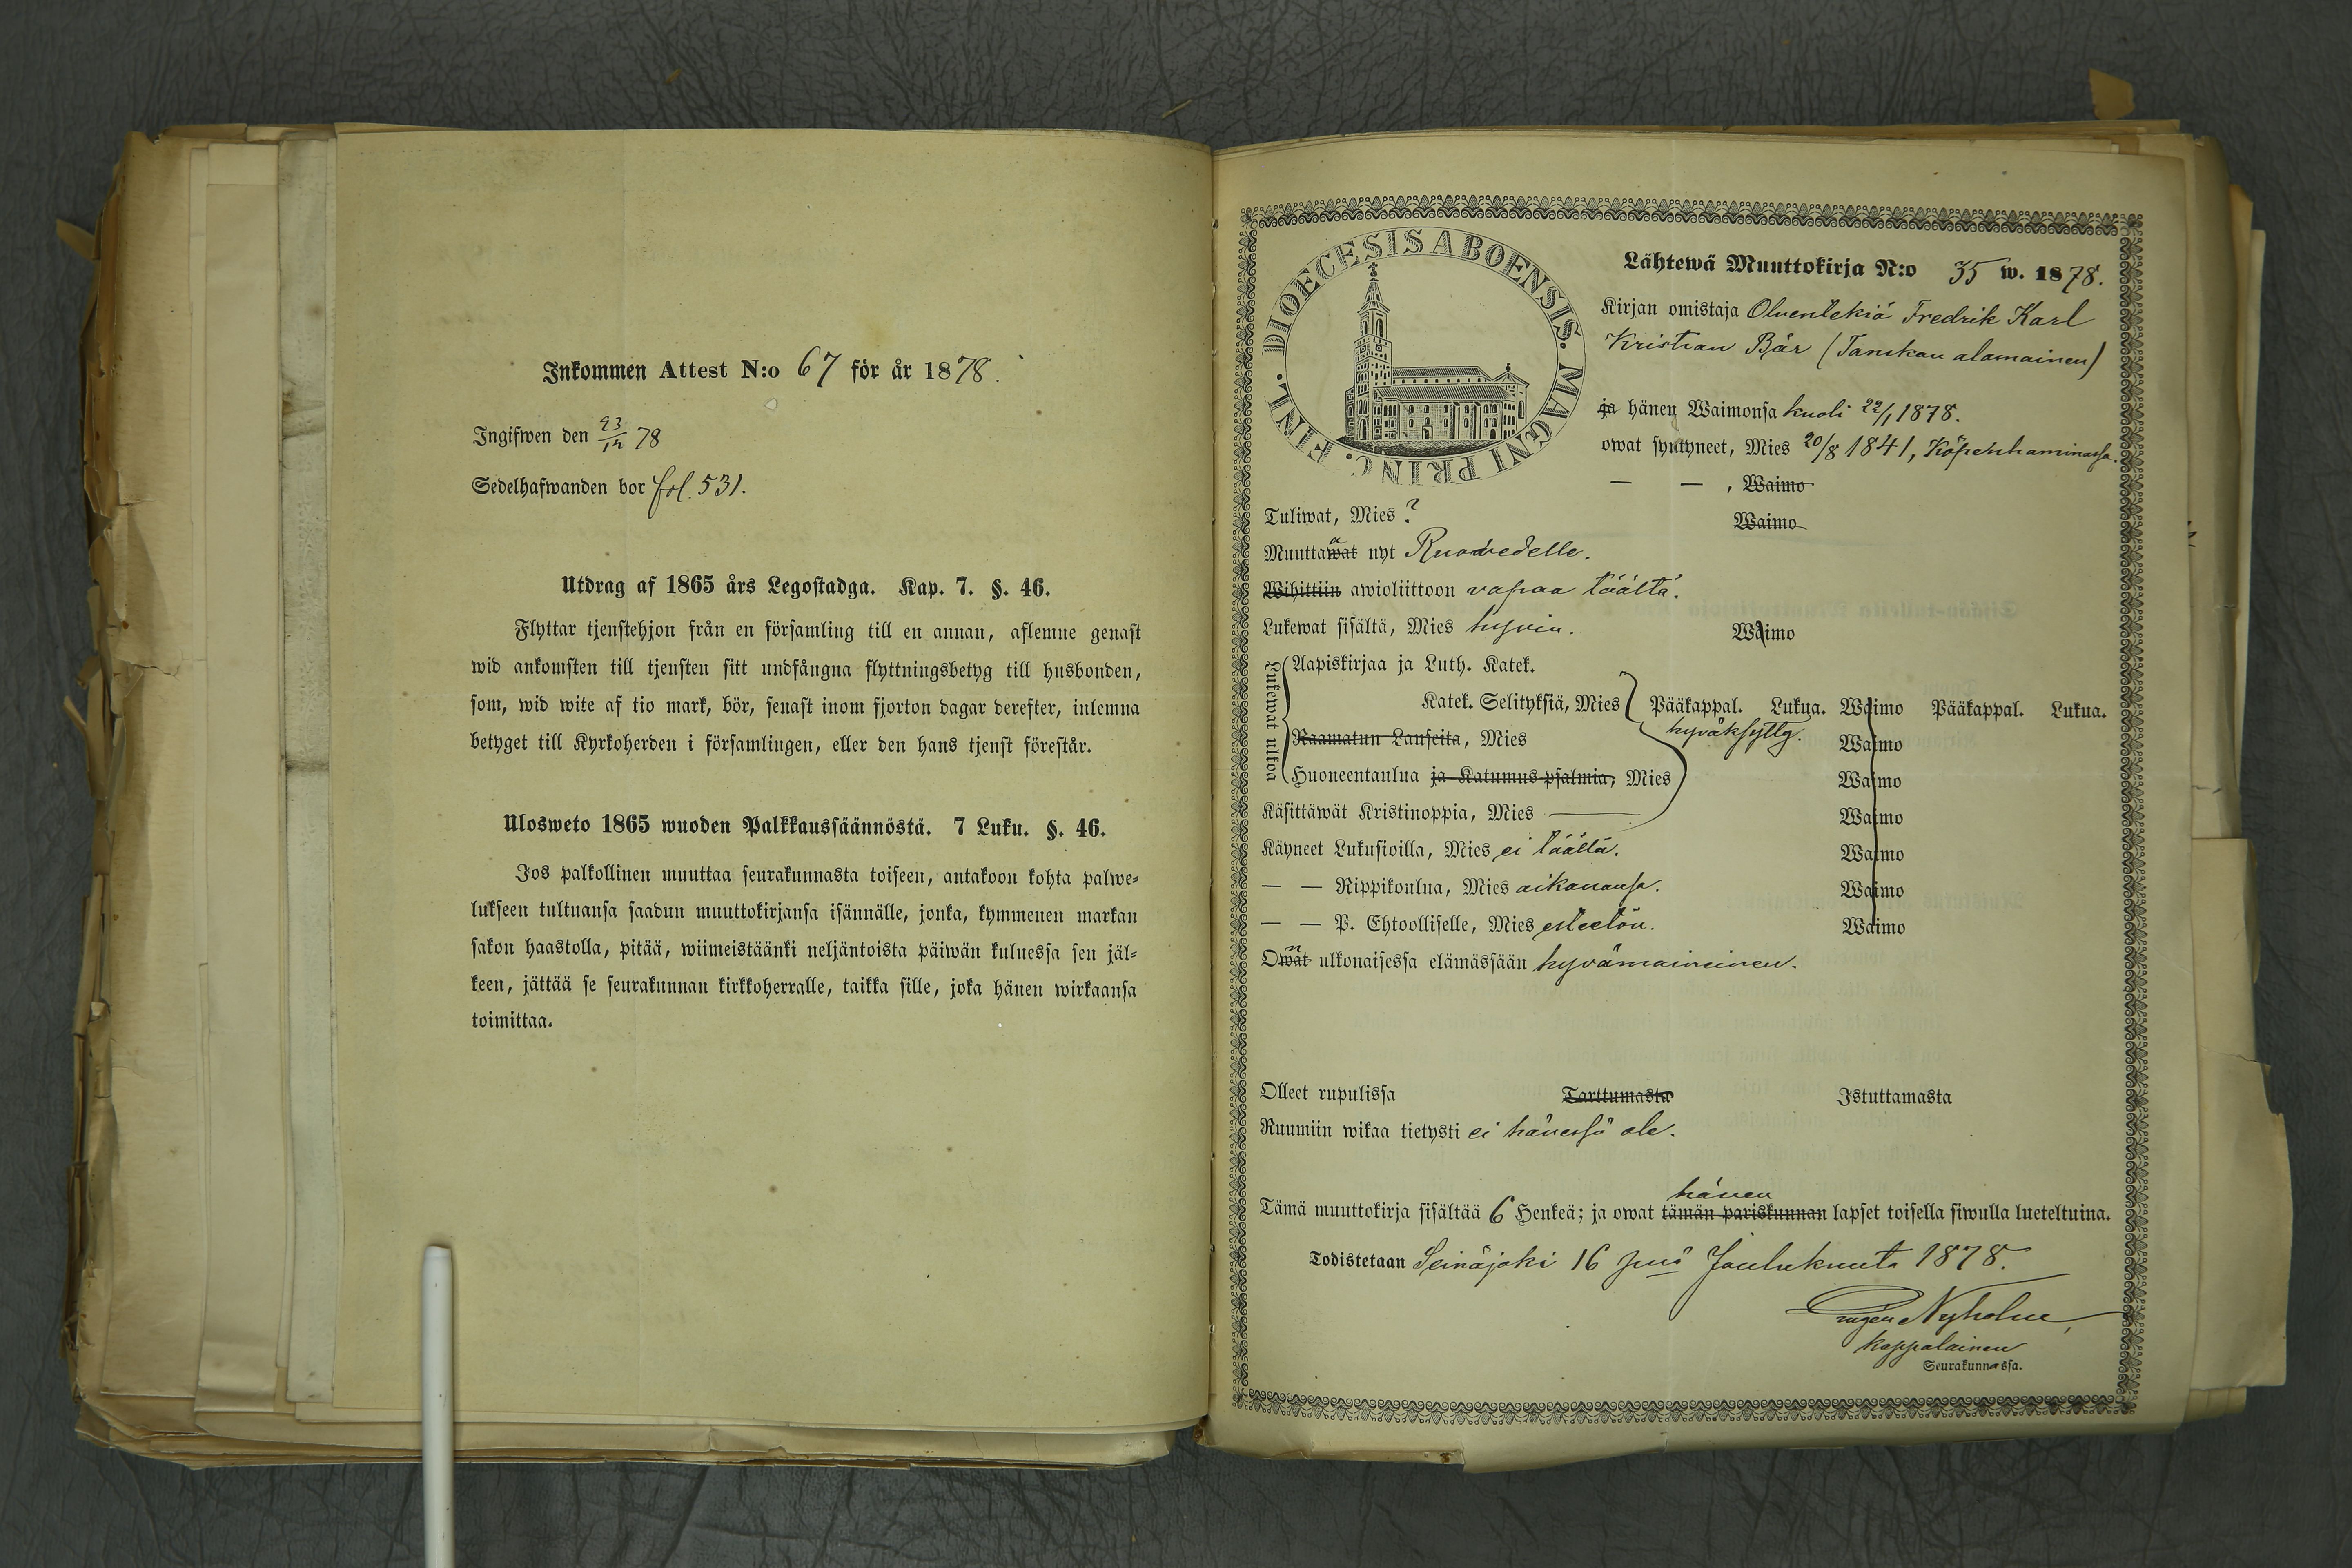 Inkommen Attest N:o 67 för år 1878.
Ingifwen den 23/12 78
Sedelhafwanden bor fol. 531.
Utdrag af 1865 års Legostadga. Kap. 7. §. 46.
Flyttar tjenstehjon från en församling till en annan, aflemne genast
wid ankomsten till tjensten sitt undfångna flyttningsbetyg till husbonden,
som, wid wite af tio mark, bör, senast inom fjorton dagar derefter, inlemna
betyget till Kyrkoherden i församlingen, eller den hans tjenst förestår.
Ulosweto 1865 wuoden Palkkaussäännöstä. 7 Luku. §. 46.
Jos palkollinen muuttaa seurakunnasta toiseen, antakoon kohta palwe-
lukseen tultuansa saadun muuttokirjansa isännälle, jonka, kymmenen markan
sakon haastolla, pitää, wiimeistäänki neljäntoista päiwän kuluessa sen jäl-
keen, jättää se seurakunnan kirkkoherralle, taikka sille, joka hänen wirkaansa
toimittaa.
DIOECESIS ABOENSIS. MAGNI PRINC. FINL.
Lähtewä Muuttokirja N:o 35 w. 1878.
Kirjan omistaja Oluentekiä Fredrik Karl
Kristian Bär (Tanskan alamainen)
ja hänen Waimonsa kuoli 22/1 1878.
owat syntyneet, Mies 20/8 1841, Köpenhaminassa.
— — , Waimo
Tuliwat, Mies ? Waimo
Muuttawat a nyt Ruovedelle.
Wihittiin awioliittoon vapaa täältä.
Lukewat sisältä, Mies hyvin. Waimo
Lukewat ulkoa
Aapiskirjaa ja Luth. Katek.
Katek. Selityksiä, Mies Pääkappal. Lukua. Waimo Pääkappal. Lukua.
hyväksytty.
Raamatun Lauseita, Mies Waimo
Huoneentaulua ja Katumus-psalmia, Mies Waimo
Käsittäwät Kristinoppia, Mies — Waimo
Käyneet Lukusioilla, Mies ei täällä. Waimo
— — Rippikoulua, Mies aikanansa. Waimo
— — P. Ehtoolliselle, Mies esteetön. Waimo
Owat n ulkonaisessa elämässään hyvämaineinen.
Olleet rupulissa Tarttumasta Istuttamasta
Ruumiin wikaa tietysti ei hänessä ole.
hänen
Tämä muuttokirja sisältää 6 Henkeä; ja owat tämän pariskunnan lapset toisella siwulla lueteltuina.
Todistetaan Seinäjoki 16 pnä Joulukuuta 1878.
Eugen Nyholm,
kappalainen
Seurakunnassa.